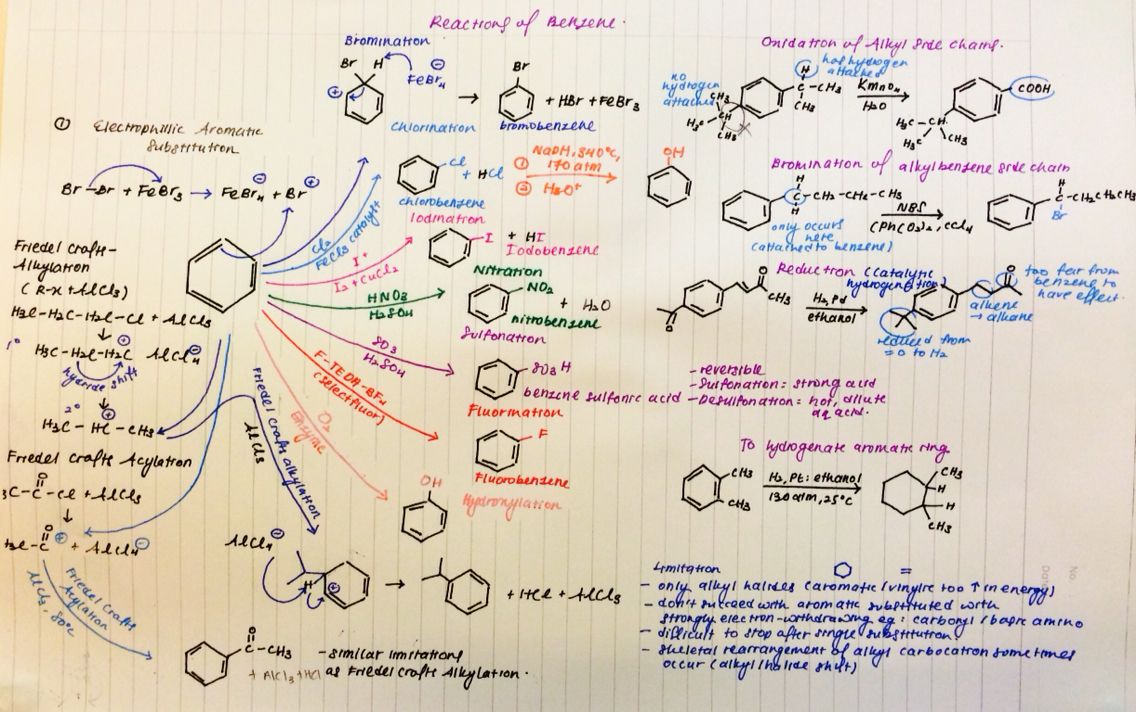 Reactions of Benzene.
Bromination
Br H
FeBr4 ⊖
⊕
→
Br
+ HBr + FeBr3
bromobenzene
① Electrophillic Aromatic
Substitution
Br-Br + FeBr3 → FeBr4 ⊖ + Br ⊕
Chlorination
Cl2
FeCl3 catalyst
Cl
+ HCl
chlorobenzene
① NaOH, 340°C,
170 atm
② H3O+
OH
Iodination
I+
I2 + CuCl2
I
+ HI
Iodobenzene
Nitration
HNO3
H2SO4
NO2
+ H2O
nitrobenzene
Sulfonation
SO3
H2SO4
SO3H
benzene sulfonic acid
- reversible
- Sulfonation: strong acid
- Desulfonation: hot, dilute
aq acid.
F-TEDA-BF4
(Selectfluor)
Fluorination
F
Fluorobenzene
O2
Enzyme
OH
Hydroxylation
Friedel Crafts-
Alkylation
(R-x + AlCl3)
H3C-H2C-H2C-Cl + AlCl3
↓
1° H3C-H2C-H2C ⊕ AlCl4 ⊖
hydride shift
2°
H3C-HC-CH3
⊕
Friedel Crafts Acylation
3C-C-Cl + AlCl3
O
↓
O
H3C-C ⊕ + AlCl4 ⊖
Friedel Crafts
Acylation
AlCl3, 80°C
Friedel Crafts alkylation
AlCl3
AlCl4 ⊖
H
⊕
→
+ HCl + AlCl3
O
C-CH3
+ AlCl3 + HCl
- similar limitations
as Friedel Crafts Alkylation.
Oxidation of Alkyl Side chains.
no
hydrogen
attached
H
has hydrogen
attached
C-CH3
CH3
CH3
H3C
CH3
KMnO4
H2O
COOH
H3C-CH
H3C CH3
Bromination of alkylbenzene side chain
H
C-CH2-CH2-CH3
H
only occurs
here
(attached to benzene)
NBS
(PhCO2)2, CCl4
H
C-CH2CH2CH3
Br
Reduction (Catalytic
hydrogenation)
O
CH3
O
H2, Pd
ethanol
O
too far from
benzene to
have effect.
alkene
→ alkane
reduced from
=O to H2
To hydrogenate aromatic ring
CH3
CH3
H2, Pt: ethanol
130 atm, 25°C
CH3
H
H
CH3
Limitation
- only alkyl halides (aromatic/vinylic too ↑ in energy)
- don't succeed with aromatic substituted with
strongly electron-withdrawing eg: carbonyl/basic amino
- difficult to stop after single substitution
- skeletal rearrangement of alkyl carbocation sometimes
occur (alkyl/halide shift)
No
Date